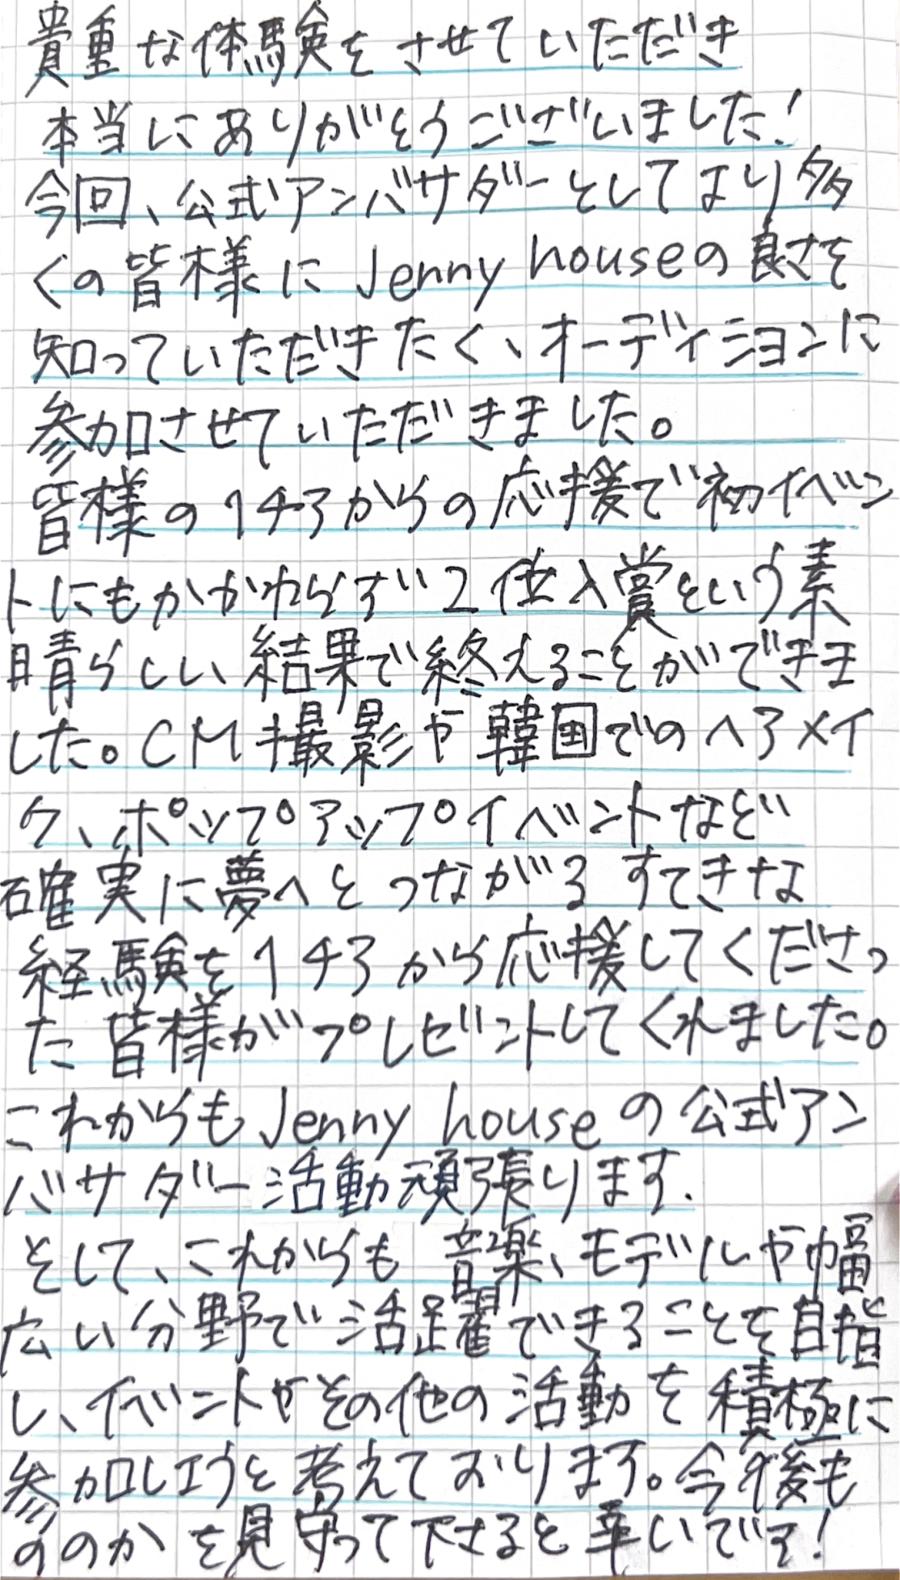 貴重な体験をさせていただき
本当にありがとうございました!
今回、公式アンバサダーとしてより多
くの皆様に Jenny houseの良さを
知っていただきたく、オーディションに
参加させていただきました。
皆様のイチ3からの応援で初イベン
トにもかかわらず2位入賞という素
晴らしい結果で終えることができま
した。CM撮影や韓国でのヘアメイ
ク、ポップアップイベントなど
確実に夢へとつながるすてきな
経験をイチ3から応援してくださっ
た皆様がプレゼントしてくれました。
これからもJenny houseの公式アン
バサダー活動頑張ります.
そして、これからも音楽、モデルや幅
広い分野で活躍できることを目指
し、イベントやその他の活動を積極に
参加しようと考えております。今後も
ののかを見守って下さると幸いです!